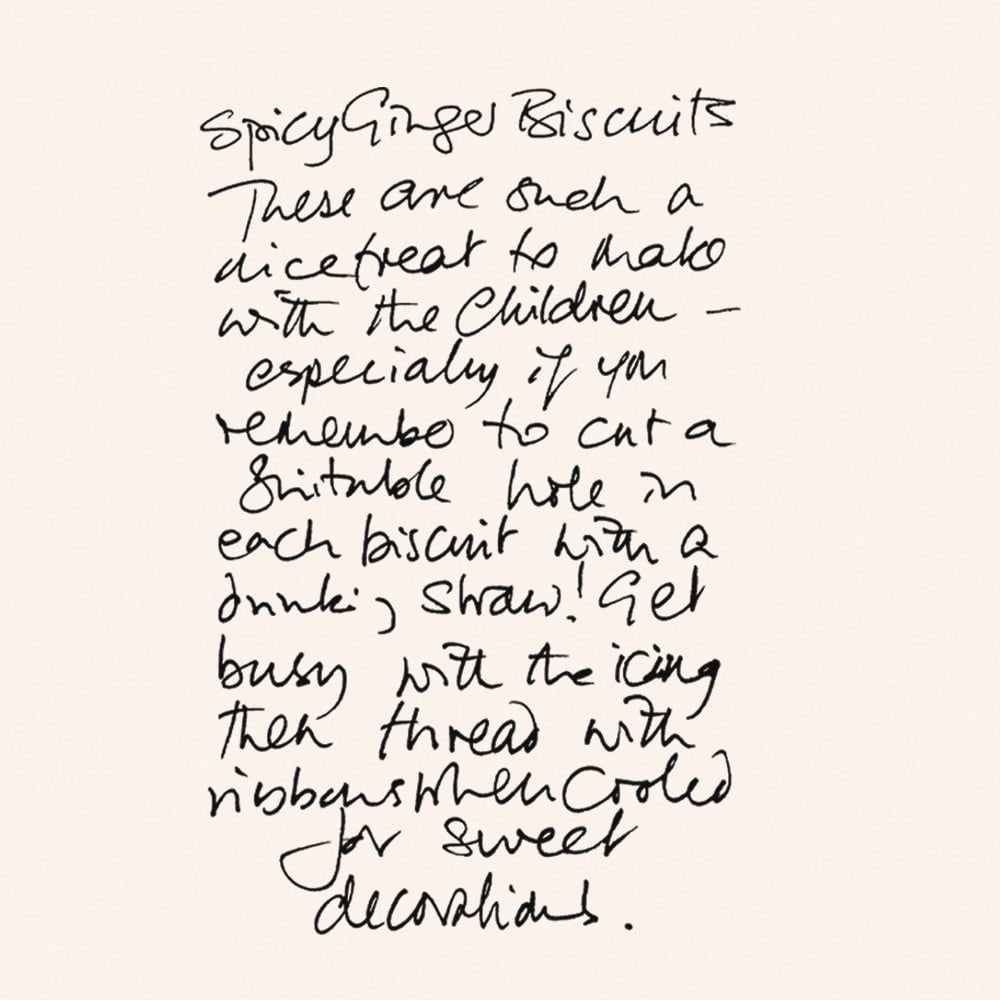 Spicy Ginger Biscuits
These are such a
nice treat to make
with the Children –
especially if you
remember to cut a
suitable hole in
each biscuit with a
drinking straw! Get
busy with the icing
then thread with
ribbons when Cooled
for sweet
decorations.